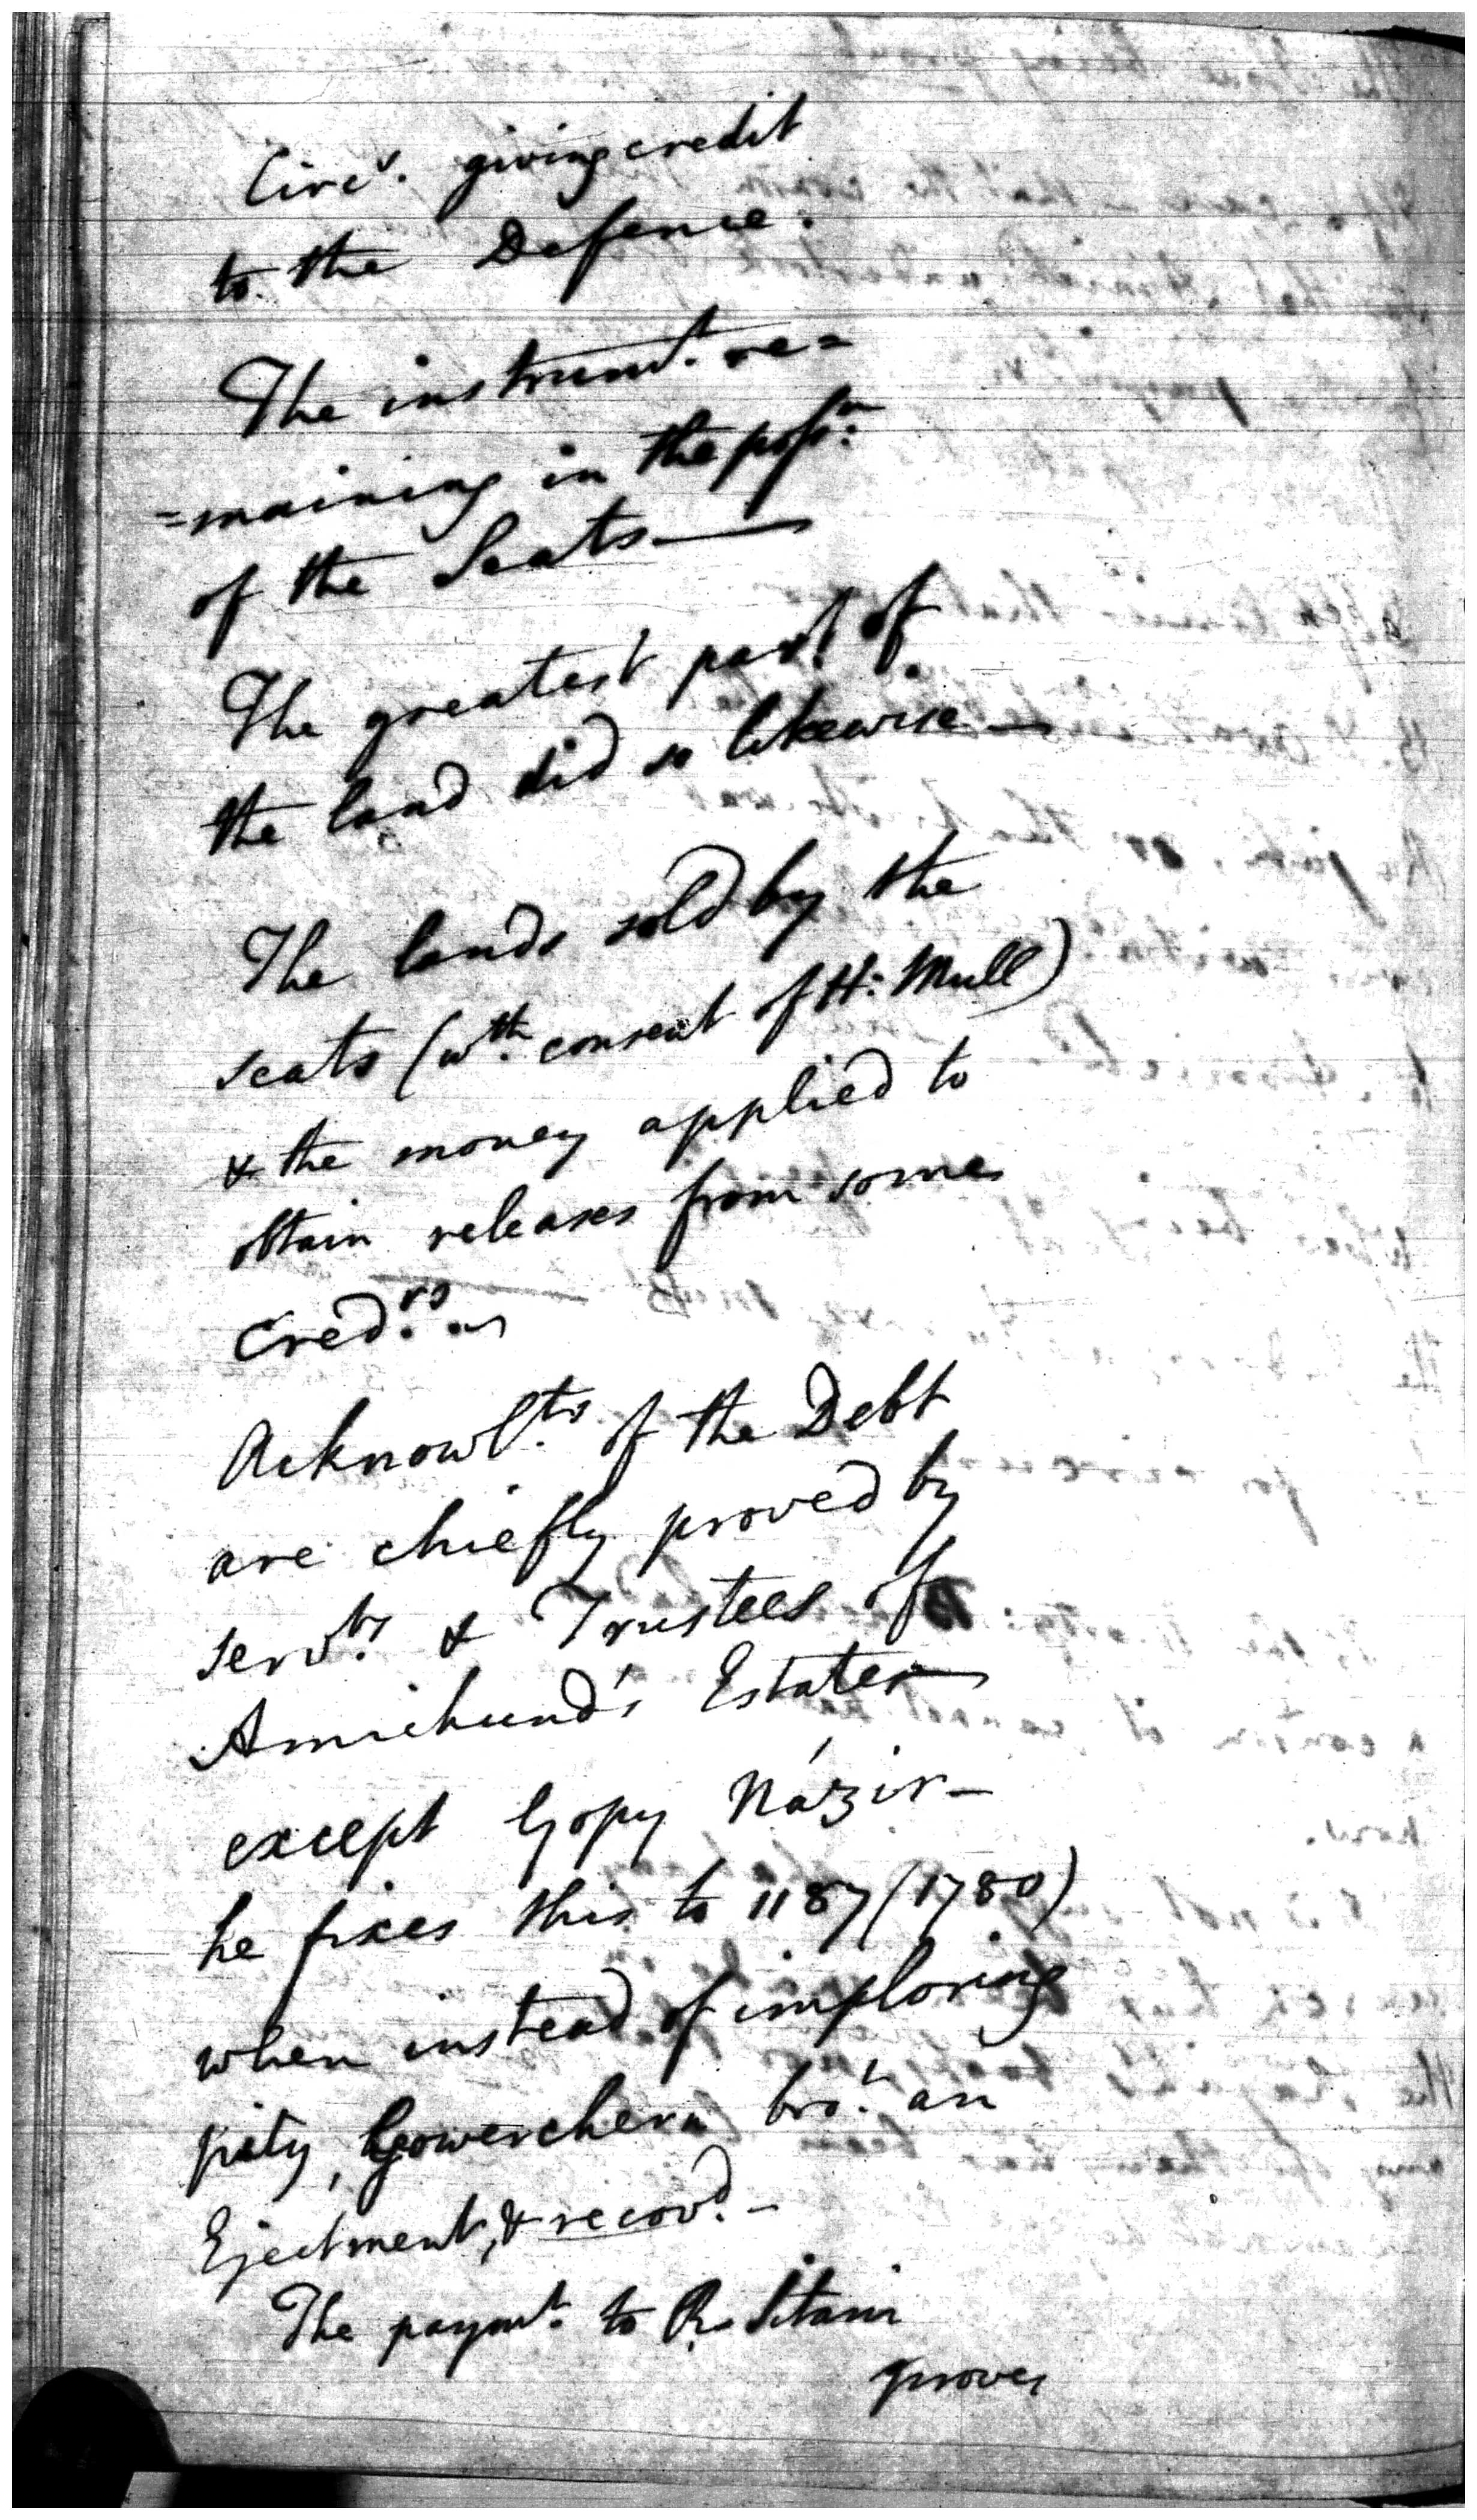 Circs. giving credit
to the Defence.
The instrumt. re=
=maining in the possn:
of the Seats—
The greatest part of
the land did so likewise—
The lands sold by the
seats (wth. consent of H: Mull)
& the money applied to
obtain releases from some
Credrs.
Acknowlts. of the Debt
are chiefly proved by
servts. & Trustees of
Amichund's Estate—
except Gopy Názir—
he fixes this to 1187 (1780)
when instead of imploring
pity, Gowerchern brot. an
Ejectment, & recovd.—
The paymt. to R. Sitaim
proves